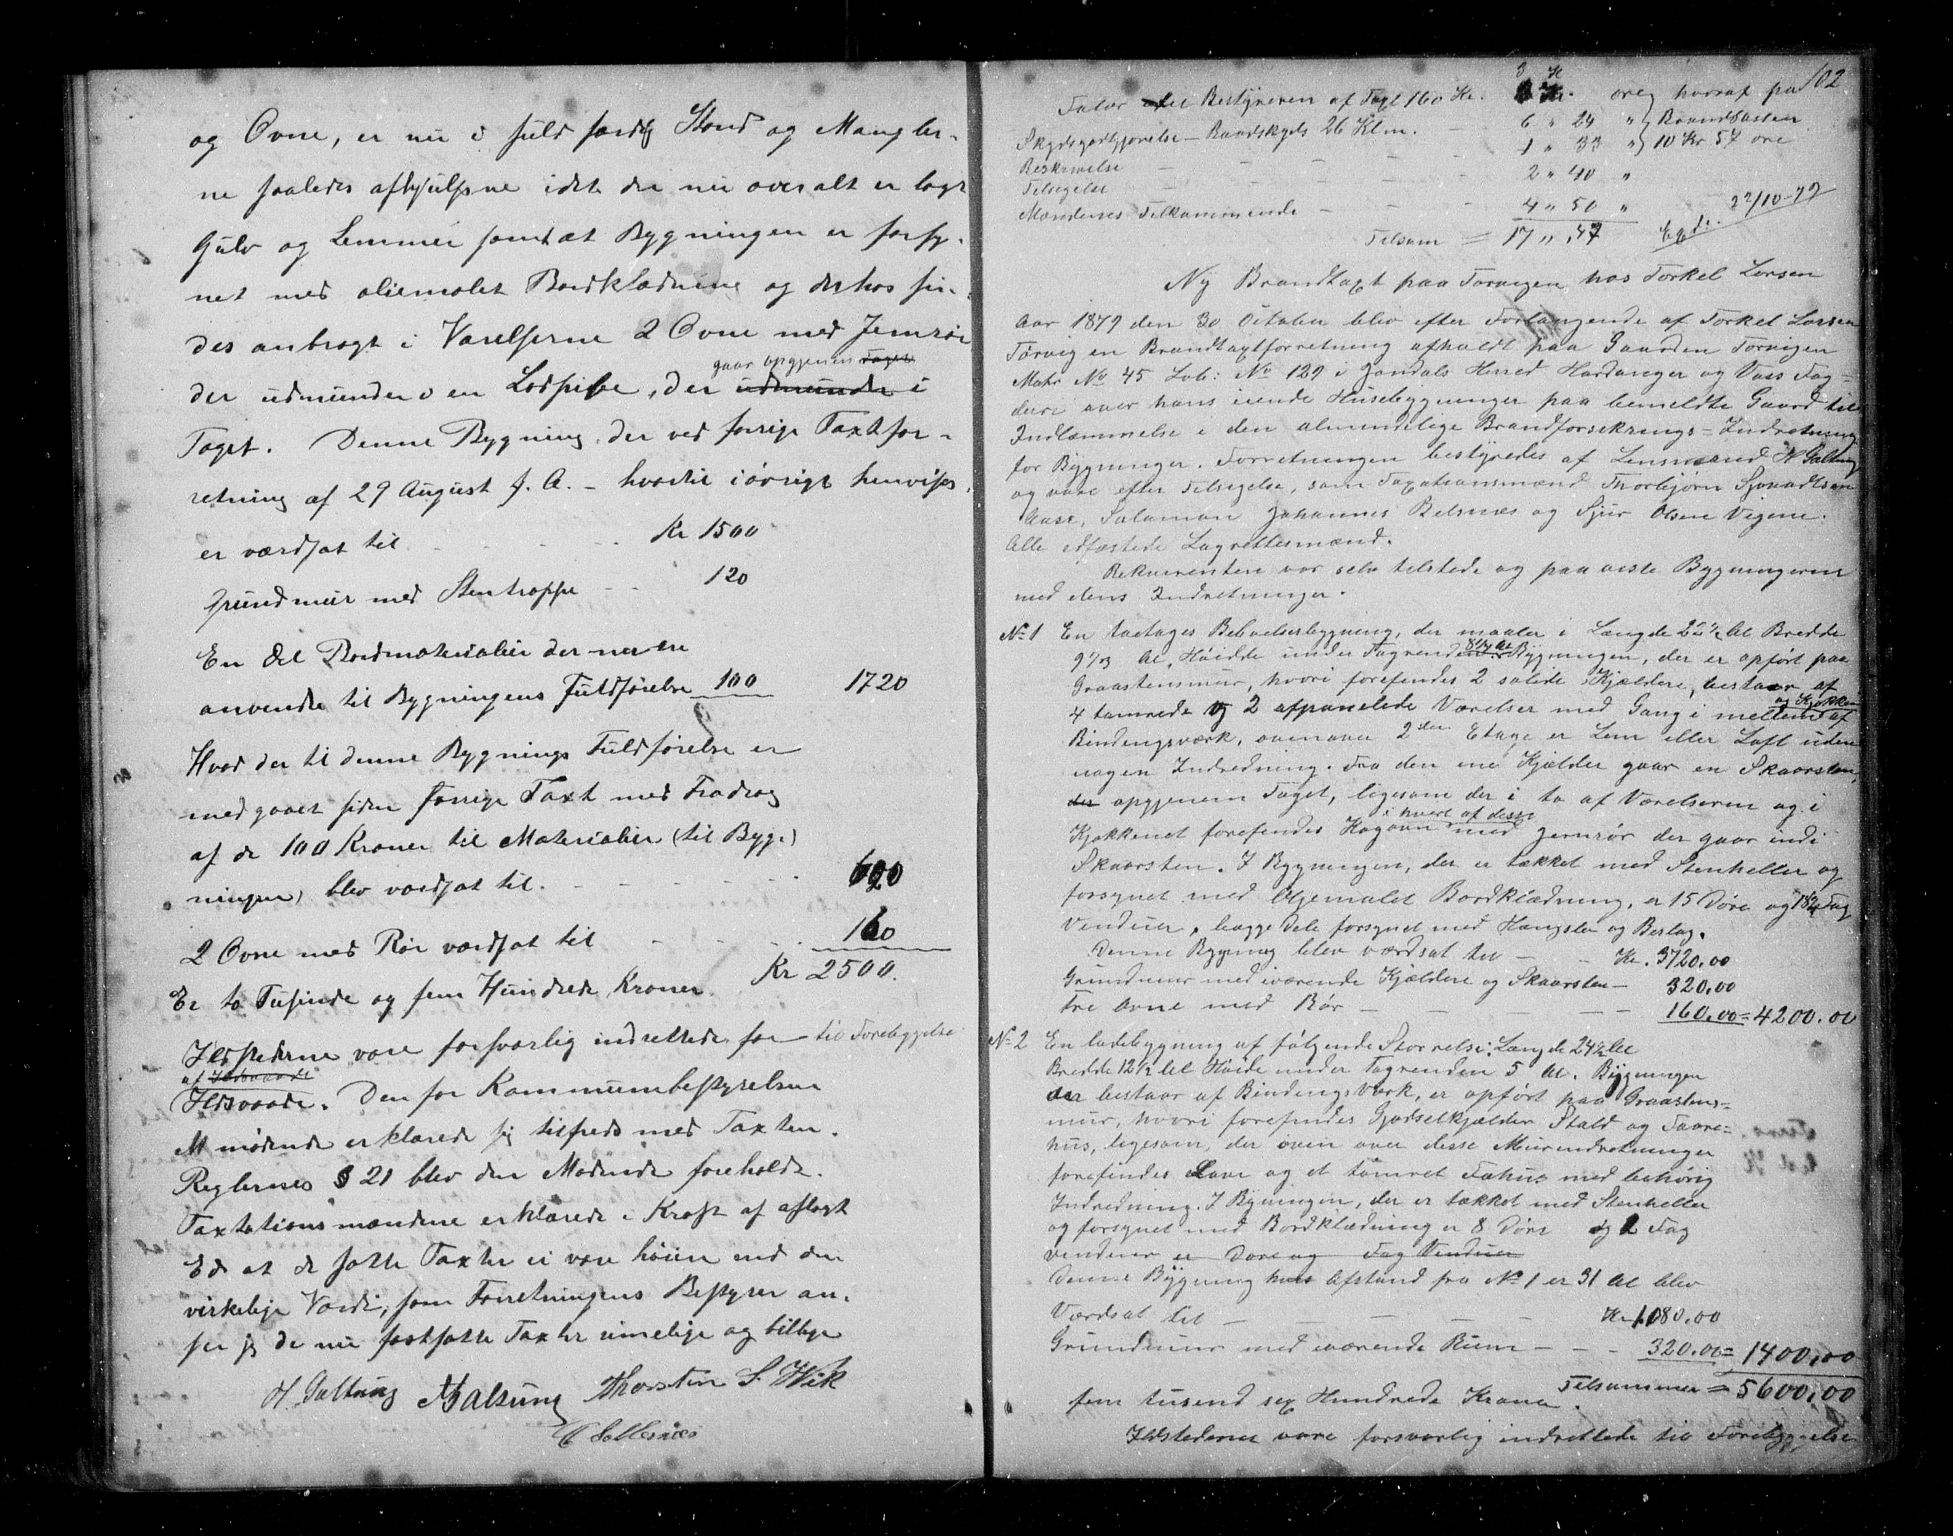 og Ovne, er nu i fuld færdig Stand og Mangler-
ne saaledes afhjulpne idet der nu overalt er lagt
Gulv og Lemmer samt at Bygningen er forsy-
net med oliemalet Bordklædning og derhos fin-
des anbragt i Værelserne 2 Ovne med Jernrør
gaar opgjenem Taget
der udmunder i en Lodpibe, der udmunder i
Taget. Denne Bygning, der ved forrige Taxtfor-
retning af 29 August f. A. – hvortil iøvrigt henvises,
er værdsat til Kr 1500
Grundmur med Stentrappe 120
En Del Bordmaterialier der
anvendes til Bygningens Fuldførelse 100 1720
Hvad der til denne Bygnings Fuldførelse er
medgaaet siden forrige Taxt med Fradrag
af de 100 Kroner til Materialier (til Byg-
ningen) blev værdsat til 620
2 Ovne med Rør værdsat til 160
Er to Tusinde og fem Hundrede Kroner Kr 2500.
Ildstederne vare forsvarlig indrettede for til Forebyggelse
af Ildsvaade
Ildsvaade. Den for Kommunebestyrelsen
Mødende erklærede sig tilfreds med Taxten.
Reglernes § 21 blev den Mødende foreholdt.
Taxtationsmændene erklærede i Kraft af aflagt
Ed at de satte Taxter ei vare høiere end den
virkelige Værdi, som Forretningens Bestyrer an-
ser jeg de nu fastsatte Taxter rimelige og billige
H Galtung Thorsten S. Wik
102
Salær til Bestyreren af Taxt 160 Kr. 3 Kr. øre hvoraf paa
Skydsgodtgjørelse – Baadskyds 26 Klm. 6 " 24 " Brandkassen
Beskrivelse 1 " 33 " 10 Kr 57 øre
Tilsigelse 2 " 40 "
Mændenes Tilkommende 4 " 50 "
Tilsam = 17 " 47 22/10-79
Ny Brandtaxt paa Torvigen hos Torkel Larsen
Aar 1879 den 30 October blev efter Forlangende af Torkel Larsen
Torvig en Brandtaxtforretning afholdt paa Gaarden Torvigen
Matr No 45 Løb: No 129 i Jondals Herred Hardanger og Voss Fog-
deri over hans eiende Husebygninger paa bemeldte Gaard til
Indlemmelse i den almindelige Brandforsikrings-Indretning
for Bygninger. Forretningen bestyredes af Lensmand N Galtung
og vare efter Tilsigelse, som Taxationsmænd Thorbjørn Sjovadtsen
Aase, Salamon Johannes Belsnæs og Sjur Olsen Vigene.
Alle edfæstede Lagrettesmænd.
Rekvirenten var selv tilstede og paaviste Bygningerne
med dens Indretninger.
No 1 En toetages Beboelsesbygning, der maaler i Længde 22 1/2 Al Bredde
Al, Høide under Tagrenden Bygningen, der er opført paa
Graastensmur, hvori forefindes 2 solide Kjældere, bestaar af
og Kjøkken
4 tømrede og 2 afpanelede Værelser med Gang i mellem af
Bindingsværk, ovenover 2den Etage er Lem eller Loft uden
nogen Indredning. Fra den ene Kjælder gaar en Skaarsten,
der opgjenem Taget, ligesom der i to af Værelserne og i
i hvert af disse
Kjøkkenet forefindes Kogovn med Jernrør der gaar ind i
Skaarsten. I Bygningen, der er tækket med Steinheller og
forsynet med Oljemalet Bordklædning, er 15 Døre og 18 Fag
Vinduer, begge Dele forsynet med Hængsler og Beslag.
Denne Bygning blev værdsat til Kr. 3720.00
Grundmur med iværende Kjældere og Skaarsten – 320.00
Tre Ovne med Rør – 160.00 = 4200.00
No 2 En Ladebygning af følgende Størrelse: Længde 24 1/2 Al
Bredde 12 1/2 Al Høide under Tagrenden 5 Al. Bygningen
der bestaar af Bindingsværk, er opført paa Graastens-
mur, hvori forefindes Gjødselkjælder Stald og Faare-
hus, ligesom der oven over disse Murindretninger
forefindes Lave og et tømret Fæhus med behørig
Indredning. I Bygningen, der er tækket med Stenheller
og forsynet med Bordklædning er 8 Døre og 2 Fag
vinduer er Døre og Fag Vinduer
Denne Bygning hvis Afstand fra No 1 er 31 Al blev
Værdsat til Kr 1080.00
Grundmur med iværende Rum – 320.00 = 1400.00
Tilsammen = 5600.00
fem tusend sex Hundrede Kroner.
Ildstederne vare forsvarlig indrettede til Forebyggelse